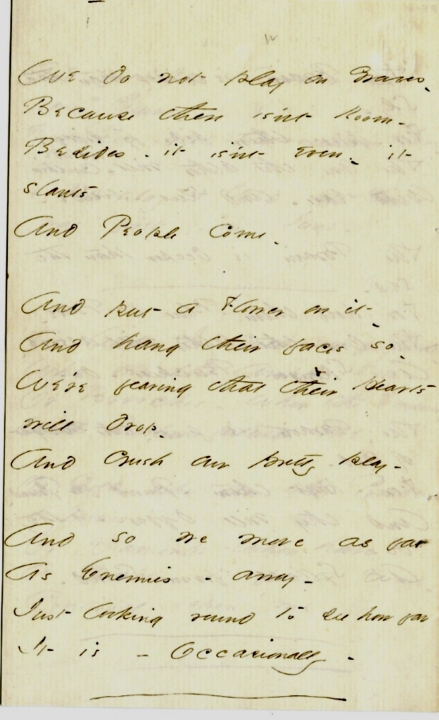 We do not play on Graves -
Because there isn't Room -
Besides - it isn't even - it
slants
And People come -
And put a Flower on it -
And hang their faces so -
We're fearing that their Hearts
will drop -
And crush our pretty play -
And so we move as far
As Enemies - away -
Just looking round to see how far
It is - Occasionally -